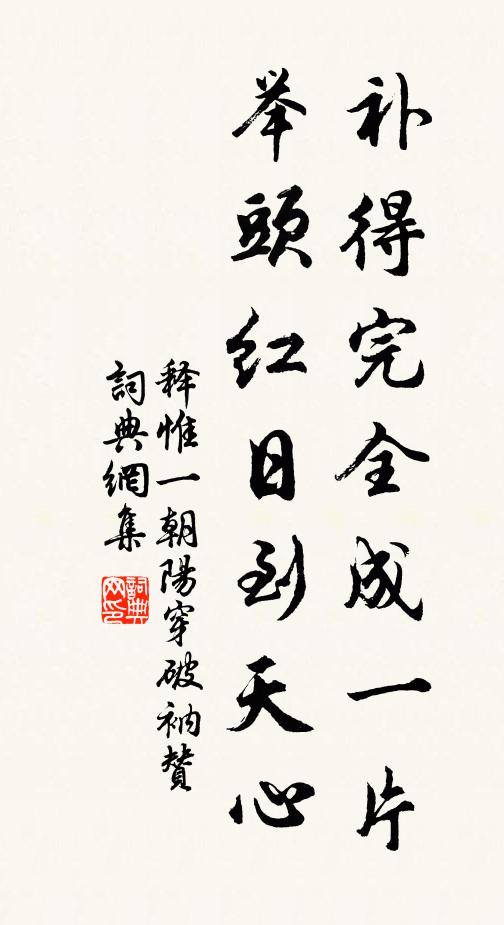 补得完全成一片
举頭红日到天心
释惟一朝陽穿破衲赞
詞典網集
詞典网印